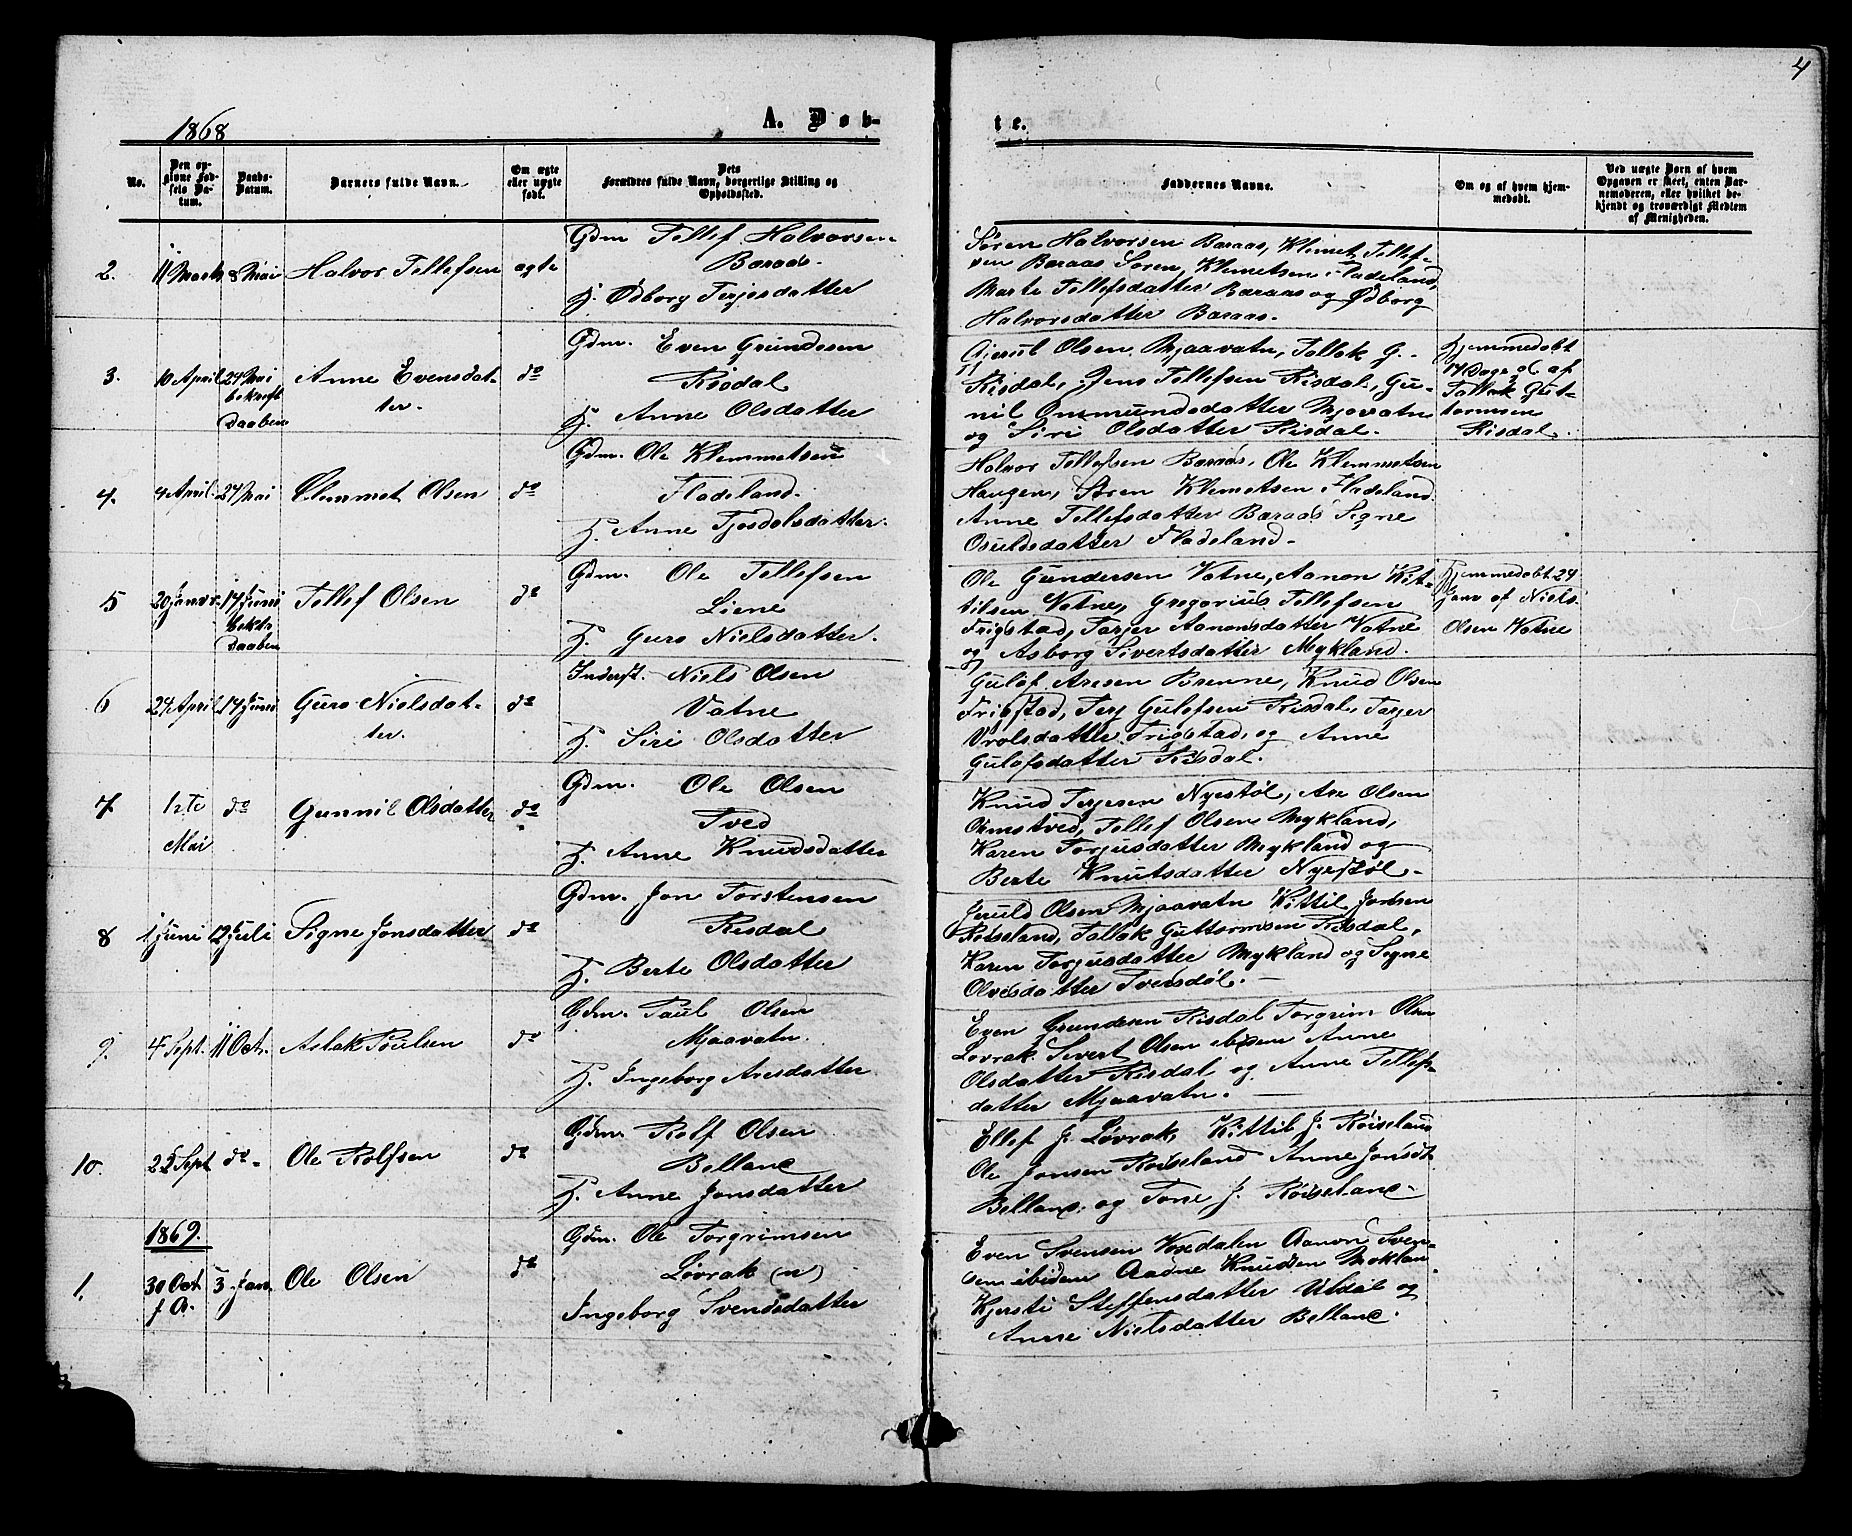 4
1868
A. Døb-
te.
No.
Den op-
givne Fød-
sels Da-
tum.
Daabs-
Datum.
Barnets fulde Navn.
Om ægte
eller uægte
født.
Dets
Forældres fulde Navn, borgerlige Stilling og
Opholdssted.
Faddernes Navne.
Om og af hvem hjem-
medøbt.
Ved uægte Børn af hvem
Opgaven er skeet, enten Bar-
nemoderen, eller hvilket be-
kjendt og troværdigt Medlem
af Menigheden.
2. 11 Marts 8 Mai Halvor Tellefsen ægte
Gdm Tellef Halvorsen
Baraas.
H. Ødborg Terjesdatter
Søren Halvorsen Baraas, Klemet Tellef-
sen Baraas Søren Klemetsen Fladeland,
Marte Tellefsdatter Baraas og Ødborg
Halvorsdatter Baraas.
3. 10 April 24 Mai
bekræft
Daaben
Anne Evensdat-
ter. do
Gdm. Even Grundesen
Risdal
H. Anne Olsdatter
Gjerul Olsen Mjaavatn, Tallak G.
Risdal, Jens Tellefsen Risdal, Gu-
nil Onsmundsdatter Mjaavatn
og Siri Olsdatter Risdal.
Hjemmedøbt
14 Dage gl. af
Tallak Gut-
tormsen
Risdal.
4. 4 April. 24 Mai Clemmet Olsen do
Gdm. Ole Klemmetsen
Fladeland.
H. Anne Tjosdolsdatter.
Halvor Tellefsen Baraas, Ole Klemmetsen
Haugen, Søren Klemetsen Fladeland.
Anne Tellefsdatter Baraas Signe
Osuldsdatter Fladeland.
5 20 Janvr. 14 Juni
bekr.
Daaben
Tellef Olsen do
Gdm. Ole Tellefsen
Liene
H. Guro Nielsdatter.
Ole Gundersen Vatne, Aanon Kit-
tilsen Vatne, Gregorius Tellefsen
Frigstad, Tarjer Aanonsdatter Vatne
og Asborg Sivertsdatter Mykland.
Hjemmedøbt 24
Janv af Niels
Olsen Vatne
6 24 April 14 Juni Guro Nielsdat-
ter. do
Inderst. Niels Olsen
Vatne
H. Siri Olsdatter
Gulof Aresen Brenne, Knud Olsen
Frigstad, Terj Gulofsen Risdal, Tarjer
Vrolsdatter Frigstad, og Anne
Gulofsdatter Risdal.
7 1ste
Mai
do Gunnil Olsdatter do
Gdm. Ole Olsen
Tved
H. Anne Knudsdatter
Knud Terjesen Nyestøl, Are Olsen
Ormstved, Tellef Olsen Mykland,
Karen Torjusdatter Mykland og
Berte Knutsdatter Nyestøl.
8 1 Juni 12 Juli Signe Jonsdatter do
Gdm. Jon Torstensen
Risdal
H. Berte Olsdatter
Jeruld Olsen Mjaavatn Kittil Jonsen
Røiseland, Tallak Guttormsen Risdal,
Karen Torjusdatter Mykland og Signe
Olvesdatter Tveisdøl.
9. 4 Sept. 11 Oct. Aslak Poulsen do
Gdm. Paul Olsen
Mjaavatn.
H. Ingeborg Aresdatter
Even Grundesen Risdal Torgrim Olsen
Løvrak Severt Olsen ibidem Anne
Olsdatter Risdal og Anne Tellefs-
datter Mjaavatn.
10. 22 Sept do Ole Rolfsen do
Gdm. Rolf Olsen
Bellane
H. Anne Jonsdatter
Ellef J. Løvrak, Kittil J. Røiseland
Ole Jonsen Røiseland Anne Jonsdt
Bellane og Tone J. Røiseland.
1869.
1. 30 Oct.
f. A.
3 Jan. Ole Olsen do
Gdm. Ole Torgrimsen
Løvrak (n)
Ingeborg Svendsdatter
Even Svensen Voxdalen Aanon Sven-
sen ibidem Aadne Knudsen Myklan
Kjersti Steffensdatter Uldal og
Anne Nielsdatter Bellane.